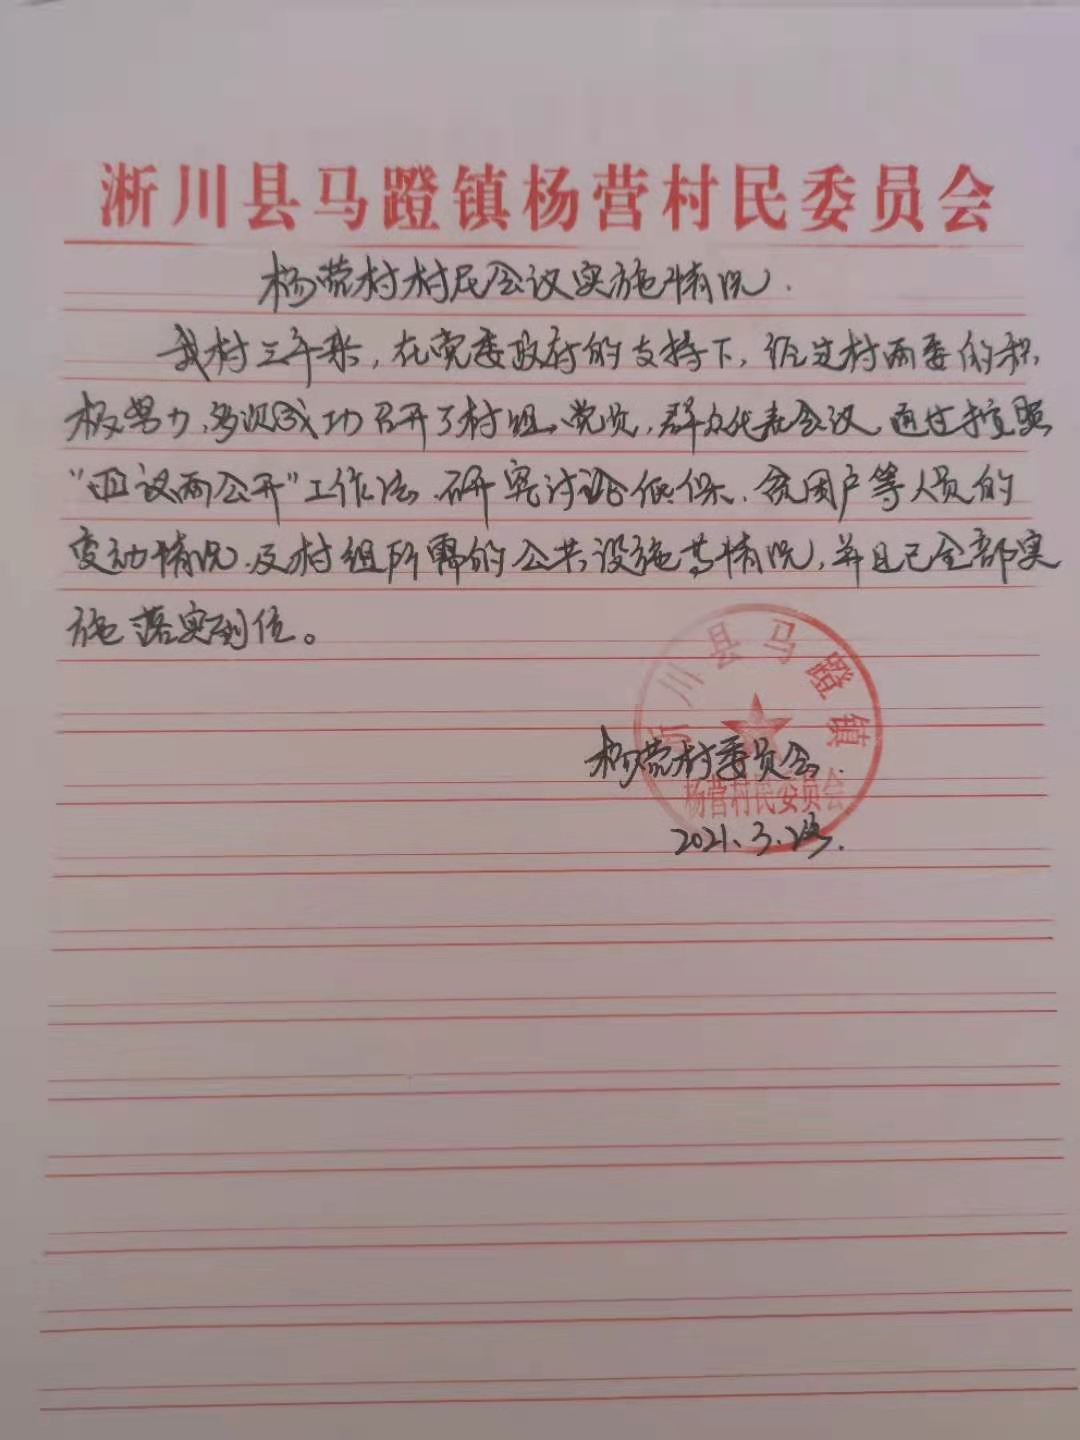 淅川县马蹬镇杨营村民委员会
杨营村村民会议实施情况.
我村三年来,在党委政府的支持下,经过村两委的积
极努力,多次成功召开了村组、党员,群众代表会议,通过按照
“四议两公开”工作法,研究讨论低保、贫困户等人员的
变动情况,及村组所需的公共设施等情况,并且已全部实
施落实到位。
淅川县马蹬镇
杨营村委员会.
杨营村民委员会
2021.3.